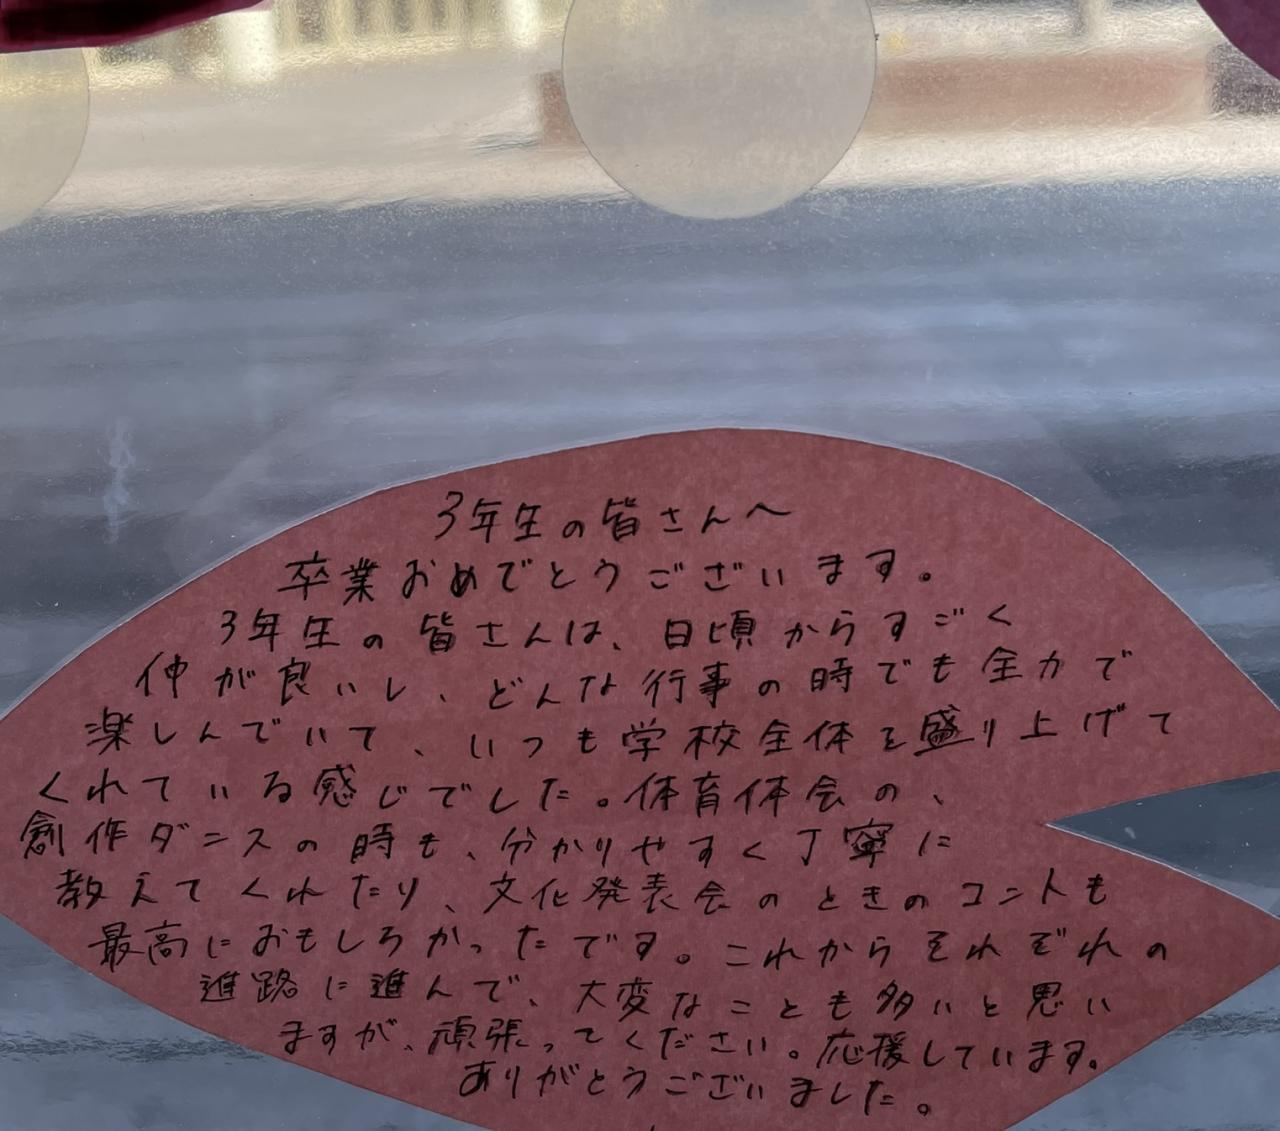 3年生の皆さんへ
卒業おめでとうございます。
3年生の皆さんは、日頃からすごく
仲が良いし、どんな行事の時でも全力で
楽しんでいて、いつも学校全体を盛り上げて
くれている感じでした。体育体会の、
創作ダンスの時も、分かりやすく丁寧に
教えてくれたり、文化発表会のときのコントも
最高におもしろかったです。これからそれぞれの
進路に進んで、大変なことも多いと思い
ますが、頑張ってください。応援しています。
ありがとうございました。